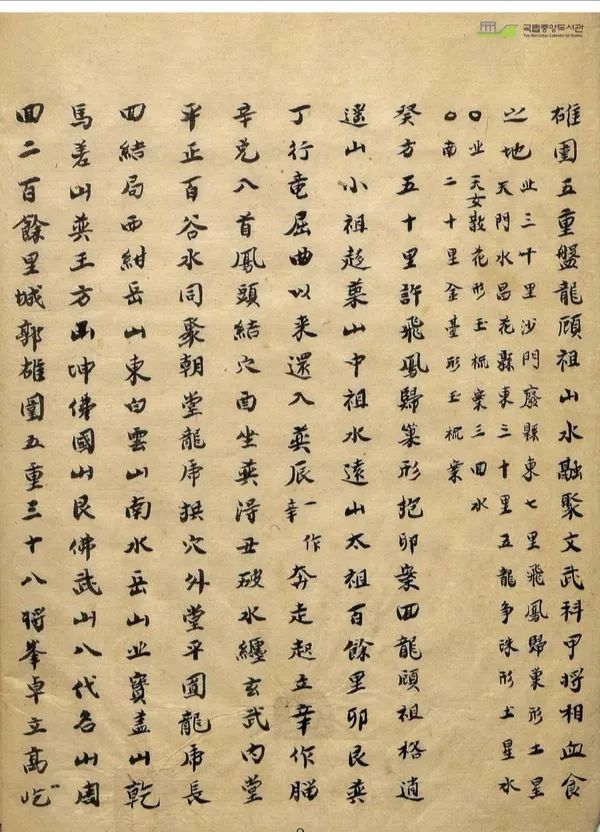 국립중앙도서관
THE NATIONAL LIBRARY OF KOREA
雄圍五重盤龍頋祖山水融聚文武科甲将相血食
之地 业三千里沙門廢縣東七里飛鳳歸巢形土星
天門水昌花縣東三十里五龍争珠形土星水
〇业天女散花形玉梡案三回水
〇南二十里金臺形玉梡案
癸方五十里許飛鳳歸巢形抱卵案四龍頋祖格逍
遥山小祖趂葉山中祖水遠山太祖百餘里卯艮巽
丁行竜屈曲以来還入巽辰 一作幸 奔走起立辛作腦
辛兌八首鳳頭結穴酉坐巽淂丑破水纏玄武内堂
平正百谷水同聚朝堂龍席拱穴外堂平圓龍席長
回結局西紺岳山東白雲山南水岳山业寶盖山乾
馬差山巽王方山坤佛國山艮佛武山八代名山周
回二百餘里城郭雄圍五重三十八將峯卓立高屹